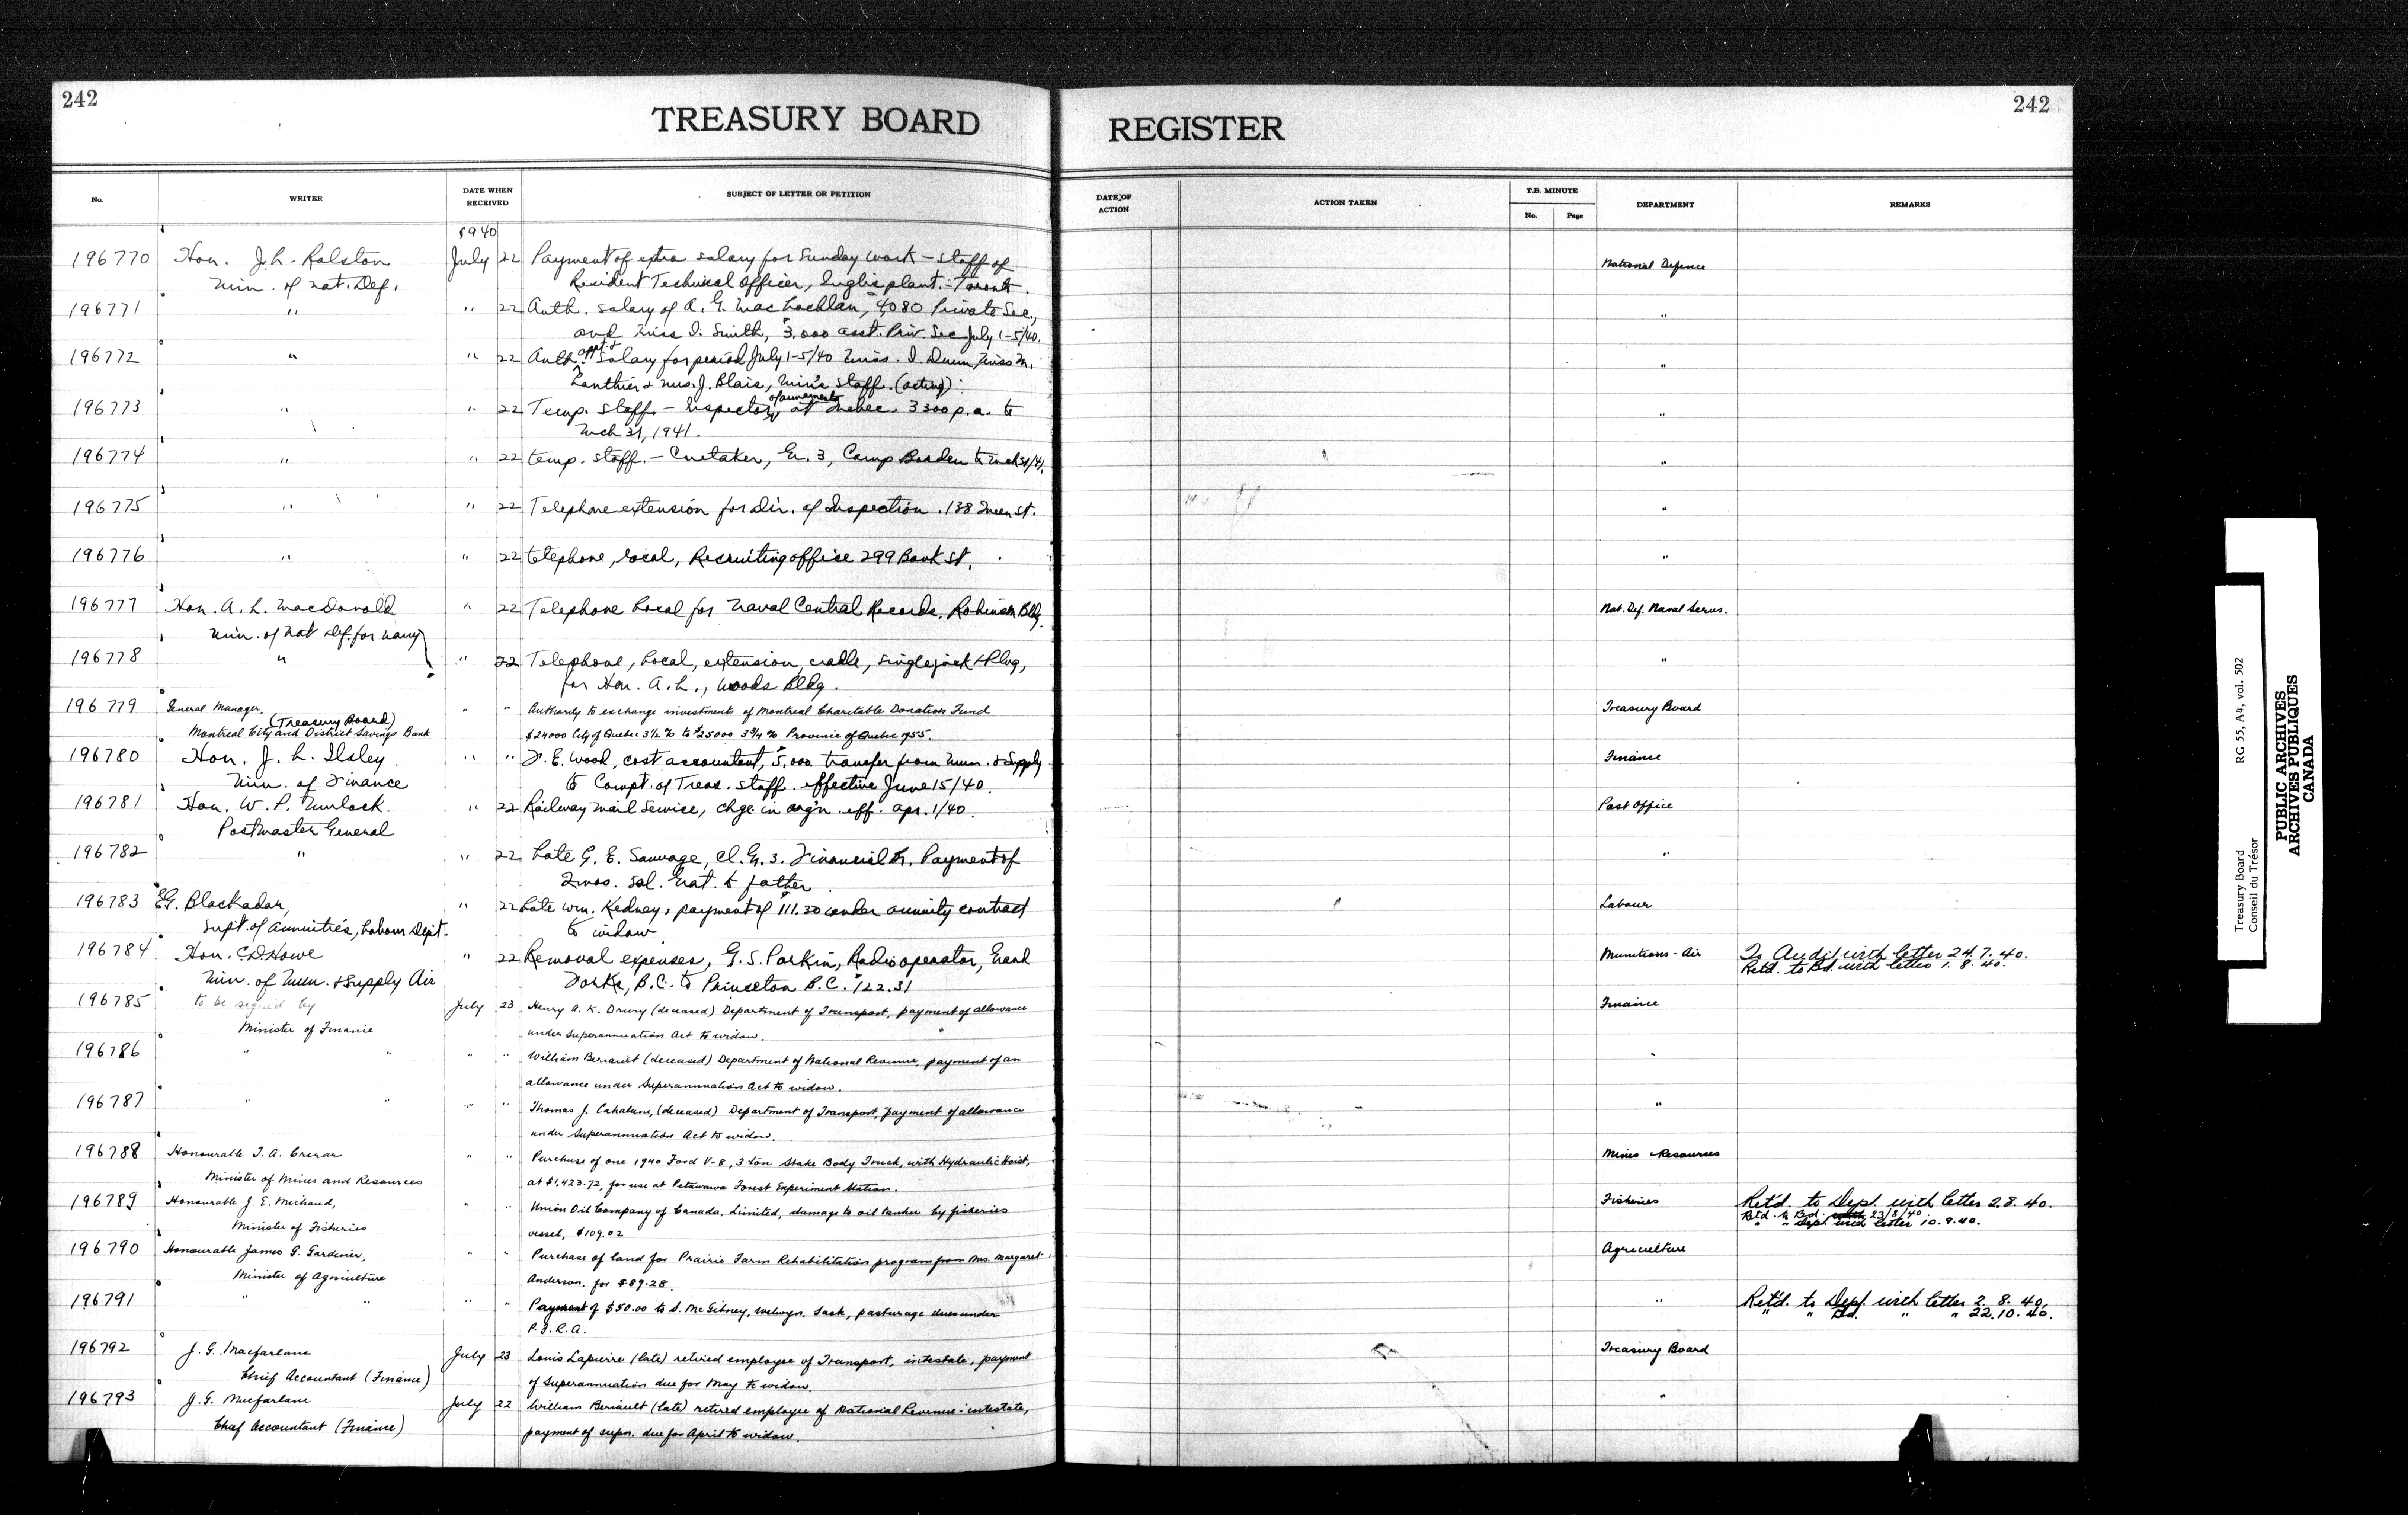 242
TREASURY BOARD
REGISTER
242
No.
WRITER
DATE WHEN RECEIVED
SUBJECT OF LETTER OR PETITION
DATE OF ACTION
ACTION TAKEN
T.B. MINUTE
No.
Page
DEPARTMENT
REMARKS
1940
196770 Hon. J. L. Ralston July 22 Payment of extra salary for Sunday work - staff of National Defence
Min. of Nat. Def. Resident Technical Officer, Inglis plant - Toronto.
196771 " " 22 Auth. salary of A. G. MacLachlan, $4,080 Private Sec., "
and Miss I. Smith, $3,000 asst. Priv. Sec July 1-5/40.
196772 " " 22 Auth. appt. & Salary for period July 1-5/40 Miss. I. Dunn, Miss M. "
Lanthier & Mrs. J. Blais, Min's Staff. (acting).
196773 " " 22 Temp. staff - Inspector of armaments at Quebec. 3300 p.a. to "
Mch 31, 1941.
196774 " " 22 temp. staff. - Caretaker, Gr. 3, Camp Borden to Mch 31/41. "
196775 " " 22 Telephone extension for Dir. of Inspection. 138 Queen St. "
196776 " " 22 telephone, local, Recruiting office 299 Bank St. "
196777 Hon. A. L. MacDonald " 22 Telephone Local for Naval Central Records, Robinson Bldg. Nat. Def. Naval Servs.
Min. of Nat Def. for Navy
196778 " " 22 Telephone, Local, extension, cradle, single jack & Plug, "
for Hon. A. L., Woods Bldg.
196779 General Manager, " " Authority to exchange investments of Montreal Charitable Donations Fund Treasury Board
(Treasury Board)
Montreal City and District Savings Bank $24000 City of Quebec 3½% to $25000 3¾% Province of Quebec 1955.
196780 Hon. J. L. Ilsley " " F. E. Wood, cost accountant, $5,000 transfer from Mun. & Supply Finance
Min. of Finance to Compt. of Treas. staff effective June 15/40.
196781 Hon. W. P. Mulock. " 22 Railway Mail Service, chge in org'n. eff. apr. 1/40. Post Office
Postmaster General
196782 " " 22 Late G. E. Sauvage, Cl. Gr. 3. Financial Br. Payment of "
2 mos. sal. Grat. to father.
196783 E.G. Blackadar, " 22 Late Wm. Kedney, payment of $111.30 under annuity contract Labour
Supt. of Annuities, Labour Dept. to widow
196784 Hon. C. D. Howe " 22 Removal expenses, G. S. Parkin, Radio operator, Grand Munitions - Air To Audit with letter 24.7.40.
Retd. to Bd. with letter 1. 8. 40.
Min. of Mun. & Supply Air Forks, B.C. to Princeton B.C. $122.31
196785 to be signed by July 23 Henry A. K. Drury (deceased) Department of Transport, payment of allowance Finance
Minister of Finance under Superannuation Act to widow.
196786 " " " " William Beriault (deceased) Department of National Revenue, payment of an "
allowance under Superannuation Act to widow.
196787 " " " " Thomas J. Cahalane, (deceased) Department of Transport, payment of allowance "
under Superannuation Act to widow.
196788 Honourable T. A. Crerar " " Purchase of one 1940 Ford V-8, 3 ton Stake Body Truck, with Hydraulic Hoist, Mines & Resources
Minister of Mines and Resources at $1,423.72, for use at Petawawa Forest Experiment Station.
196789 Honourable J. E. Michaud, " " Union Oil Company of Canada, Limited, damage to oil tanker by fisheries Fisheries Ret'd. to Dept. with letter 2.8.40.
Retd. to Bd. 23/8/40
" " Dept with letter 10.9.40.
Minister of Fisheries vessel, $109.02
196790 Honourable James G. Gardiner, " " Purchase of land for Prairie Farm Rehabilitation program from Mrs. Margaret Agriculture
Minister of Agriculture Anderson, for $89.28.
196791 " " " " Payment of $50.00 to S. McGibney, Welwyn, Sask, pasturage dues under " Ret'd. to Dept. with letter 2. 8. 40.
" " Bd. " " 22.10.40.
P. F. R. A.
196792 J. G. Macfarlane July 23 Louis Lapierre (late) retired employee of Transport, intestate, payment Treasury Board
Chief Accountant (Finance) of Superannuation due for May to widow.
196793 J. G. Macfarlane July 22 William Beriault (late) retired employee of National Revenue - intestate, "
Chief Accountant (Finance) payment of supn. due for April to widow.
Treasury Board RG 55, A4, vol. 502
Conseil du Trésor
PUBLIC ARCHIVES
ARCHIVES PUBLIQUES
CANADA